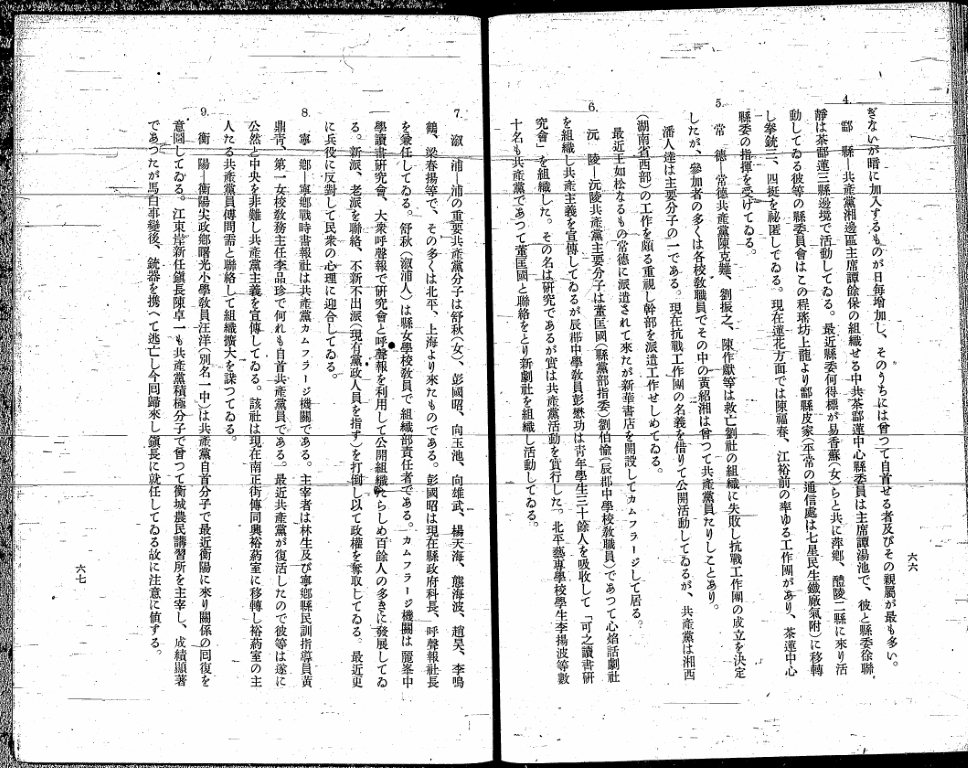 ぎないが暗に加入するものが日毎增加し、そのうちには曾つて自首せる者及びその親屬が最も多い。
4. 酃 縣―共產黨湘邊區主席譚餘保の組織せる中共茶酃蓮中心縣委員は主席譚湯池で、彼と縣委徐聯
靜は茶酃蓮三縣邊境で活動してゐる。最近縣委何得標が易香蘇(女)らと共に萍鄉、醴陵二縣に來り活
動してゐる彼等の縣委員會はこの程塔坊上龍より酃縣皮家(平常の通信處は七星民生鐵廠氣附)に移轉
し拳銃三、四挺を祕匿してゐる。現在蓮花方面では陳福春、江裕前の率ゆる工作團があり、茶蓮中心
縣委の指揮を受けてゐる。
5. 常 德―常德共產黨陳克 、劉振之、陳作獻等は救亡劉社の組織に失敗し抗戰工作團の成立を決定
したが、參加者の多くは各校敎職員でその中の黃紹湘は曾つて共產黨員たりしことあり。
潘人達は主要分子の一である。現在抗戰工作團の名義を借りて公開活動してゐるが、共產黨は湘西
(湖南省西部)の工作を頗る重視し幹部を派遣工作せしめてゐる。
最近王如松なるもの常德に派遣されて來たが新華書店を開設してカムフラージして居る。
6. 沅 陵―沅陵共產黨主要分子は董匡國(縣黨部指委)劉伯愉(辰郡中學校敎職員)であつて心焰話劇社
を組織し共產主義を宣傳してゐるが辰郡中學敎員彭懋功は靑年學生三十餘人を吸收して「可之讀書研
究會」を組織した。その名は研究であるが實は共產黨活動を實行した。北平藝專學校學生李揚波等數
十名も共產黨であつて董匡國と聯絡をとり新劇社を組織し活動してゐる。
六六
7. 溆 浦―浦の重要共產黨分子は舒秋(女)、彭國昭、向玉池、向雄武、楊天海、龔海波、趙昊、李鳴
鶴、梁春揚等で、その多くは北平、上海より來たものである。彭國昭は現在縣政府科長、呼聲報社長
を兼任してゐる。舒秋(溆浦人)は縣女學校敎員で組織部責任者である。カムフラージ機關は麗峯中
學讀書硏究會、大衆呼聲報で硏究會と呼聲報を利用して公開組織たらしめ百餘人の多きに發展してゐ
る。新派、老派を聯絡、不新不出派(現有黨政人員を指す)を打倒し以て政權を奪取してゐる。最近更
に兵役に反對して民衆の心理に迎合してゐる。
8. 寧 鄕―寧鄕戰時書報社は共產黨カムフラージ機關である。主宰者は林生及び寧鄕縣民訓指導員黃
鼎靑、第一女校敎務主任李品珍で何れも自首共產黨員である。最近共產黨が復活したので彼等は遂に
公然と中央を非難し共產黨主義を宣傳してゐる。該社は現在南正街傳同興裕葯室に移轉し裕葯室の主
人たる共產黨員傅問需と聯絡して組織擴大を謀つてゐる。
9. 衡 陽―衡陽尖政鄕曙光小學敎員汪洋(別名一中)は共產黨自首分子で最近衡陽に來り關係の囘復を
意圖してゐる。江東岸新任鎭長陳卓一も共產黨積極分子で曾つて衡城農民講習所を主宰し、成績顯著
であつたが馬日事變後、銃器を携へて逃亡し今囘歸來し鎭長に就任してゐる故に注意に値する。
六七